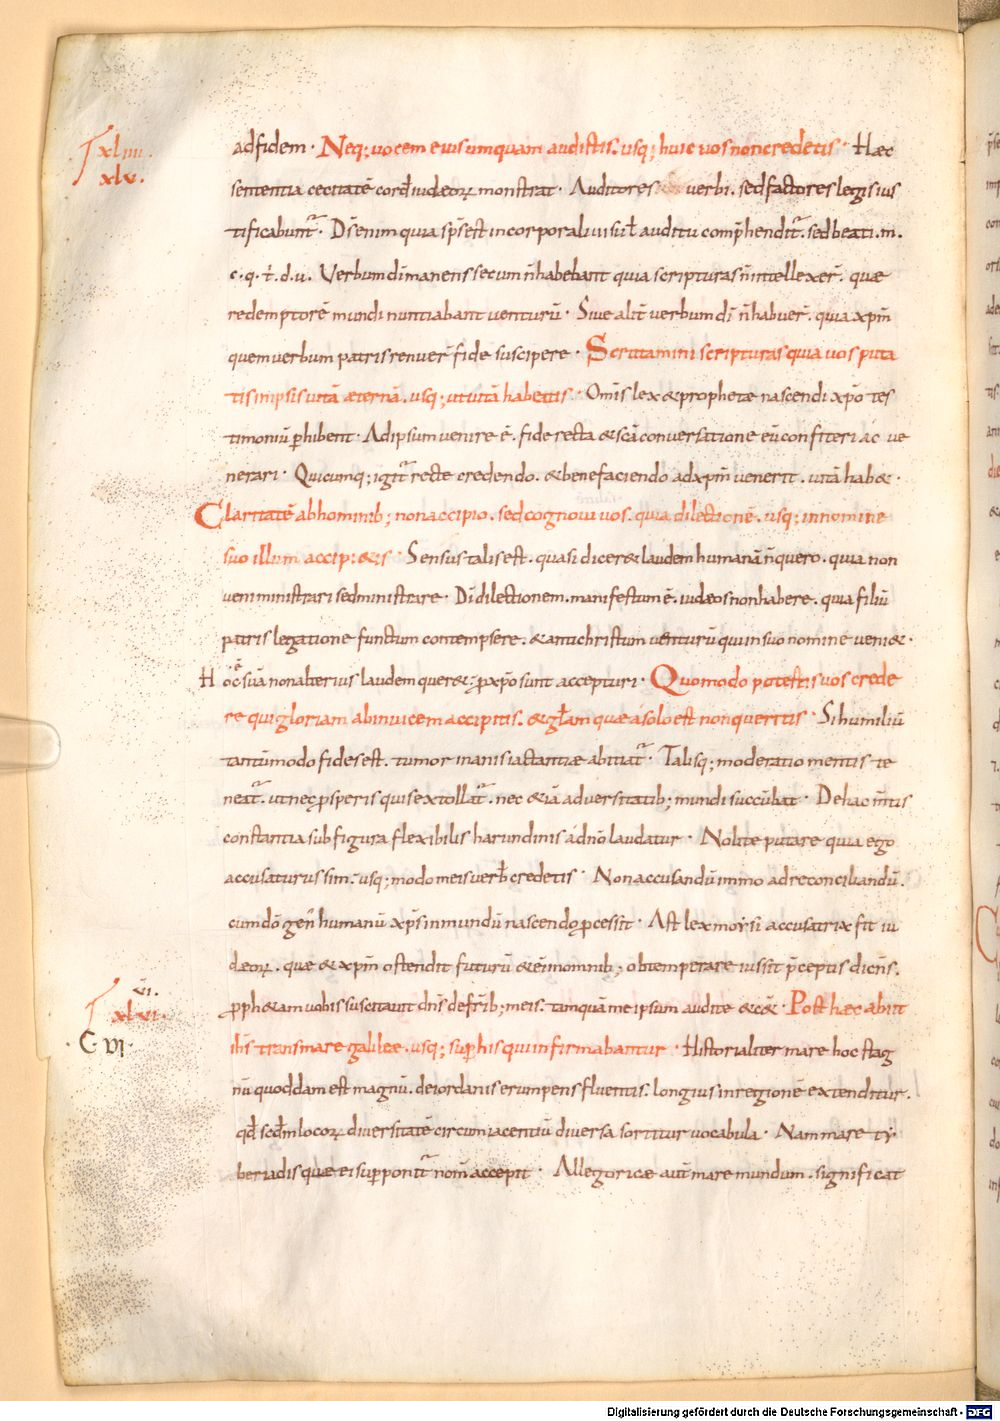 xliiii.
xlv.
ad fidem · Neq; vocem eius umquam audistis. usq; huic vos non creditis · Haec
sententia cecitatē cord̄ iudeoꝝ monstrat · Auditores verbi. sed factores legis ius
tificabunt᷑ · Dī enim quia sp̄s est in corporali visu ł auditu comp̄hendit᷑. sed beati. m.
c. q. i. d. u. Verbum dī manens secum n̄ habebant quia scripturas n̄ intellexer̄. quae
redemptorē mundi nuntiabant venturū · Sive alit̄ verbum dī n̄ habuer̄. quia xp̄m
quem verbum patris renuer̄ fide suscipere · Scrutamini scripturas quia vos puta
tis in ipsis vitā aeternā. usq; ut vitā habeatis · Om̄is lex & prophetae nascendi xp̄o tes
timoniū ꝑhibent · Ad ipsum venire ē. fide recta & sc̄a conversatione eū confiteri ac ve
nerari · Quicumq; igit᷑ recte credendo. & benefaciendo ad xp̄m venerit. vitā hab& ·
Claritatē ab hominib; non accipio. sed cognovi vos. quia dilectionē. usq; in nomine
suo illum accipi&is · Sensus talis est. quasi dicer& laudem humanā n̄ quero. quia non
veni ministrari sed ministrare · Dī dilectionem. manifestum ē. iudaeos non habere. quia filiū
patris legatione functum contempsere. & antichristum venturū qui in suo nomine veni& ·
Hoc ē suā non alterius laudem quer& ꝓ xp̄o sunt accepturi · Quomodo potestis vos crede
re qui gloriam ab invicem accipitis. & gł̄am quae a solo est non queritis · Si humiliū
tantūmodo fides est. tumor inanis iactantiae abitiat᷑ · Talisq; moderatio mentis te
neat᷑. ut nec ꝓsperis quis extollat᷑. nec &iā adversitatib; mundi succūbat · De hac m̄tis
constantia sub figura flexibilis harundinis a dn̄o laudatur · Nolite putare quia ego
accusaturus sim. usq; modo meis verb̄ credetis · Non accusandū immo ad reconciliandū.
cum dō gen̄ humanū xp̄s in mundū nascendo ꝓcessit · Ast lex moysi accusatrix fit iu
deoꝝ. quae & xp̄m ostendit futurū & ei in omnib; obtemperare iussit p̄ceptis dicēs.
ꝓph&am vobis suscitavit dn̄s de fr̄ib; meis. tamquā me ipsum audite & c&̄ · Post haec abiit
vi.
xlvi.
C vi
ih̄s trans mare galileae. usq; suꝑ his qui infirmabantur · Historialiter mare hoc stag
nū quoddam est magnū. de iordanis erumpens fluentis. longius in regionē extenditur.
qd̄ secd̄m locoꝝ diversitatē circumiacentiū diversa sortitur vocabula · Nam mare ty
beriadis quae ei supponit᷑ nom̄ accepit · Allegoricae aut̄ mare mundum. significat
Digitalisierung gefördert durch die Deutsche Forschungsgemeinschaft - DFG